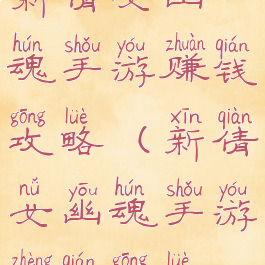 新倩女幽
hún shǒu yóu zhuàn qián
魂手游赚钱
gōng lüè xīn qiàn
攻略（新倩
nǚ yōu hún shǒu yóu
女幽魂手游
zhèng qián gōng lüè